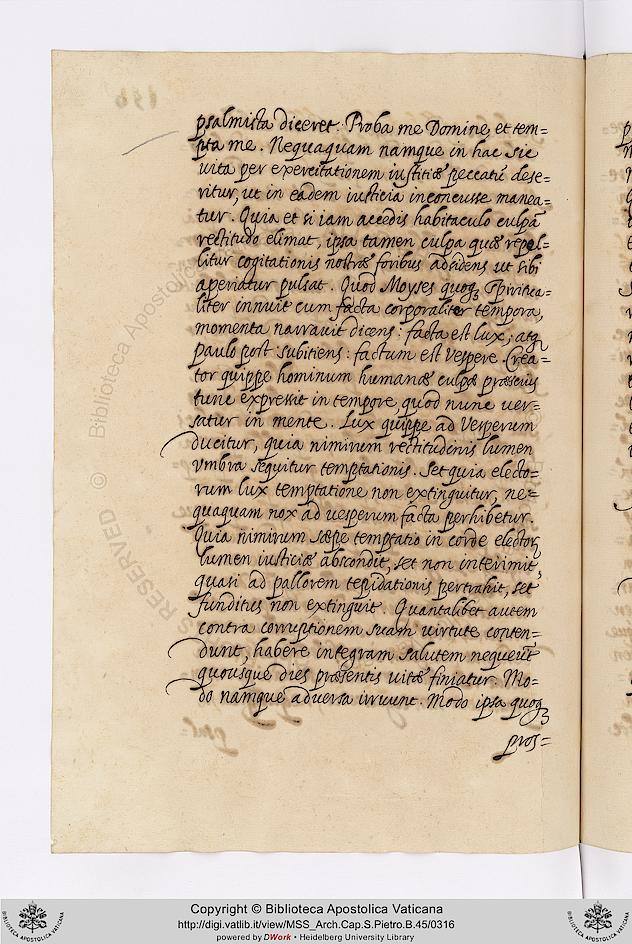 psalmista diceret. Proba me Domine, et tem=
pta me. Nequaquam namque in hac sic
uita per exercitationem iustitiæ peccatũ dese=
ritur, ut in eadem iusticia inconcusse manea=
tur. Quia et si iam accedis habitaculo culpã
rectitudo elimat, ipsa tamen culpa quæ repel=
litur cogitationis nostræ foribus adsidens ut sibi
aperiatur pulsat. Quod Moyses quoqꝫ Spiritua=
liter innuit cum facta corporaliter tempora,
momenta narrauit dicens: facta est lux, atqꝫ
paulo post subitiens: factum est Vespere. Crea=
tor quippe hominum humanæ culpæ præscius
tunc expressit in tempore, quod nunc uer=
satur in mente. Lux quippe ad Vesperum
ducitur, quia nimirum rectitudinis lumen
vmbra sequitur temptationis. Set quia electo=
rum lux temptatione non extinguitur, ne=
quaquam nox ad uesperum facta perhibetur.
Quia nimirum sæpe temptatio in corde elector
lumen iusticiæ abscondit, set non interimit,
quasi ad pallorem tepidationis pertrahit, set
funditus non extinguit. Quantalibet autem
contra corruptionem suam uirtute conten=
dunt, habere integram salutem nequeũt
quousque dies præsentis uitæ finiatur. Mo=
do namque aduersa irruunt. Modo ipsa quoqꝫ
pros=
© Biblioteca Apostolica
RESERVED
Copyright © Biblioteca Apostolica Vaticana
http://digi.vatlib.it/view/MSS_Arch.Cap.S.Pietro.B.45/0316
powered by DWork • Heidelberg University Library